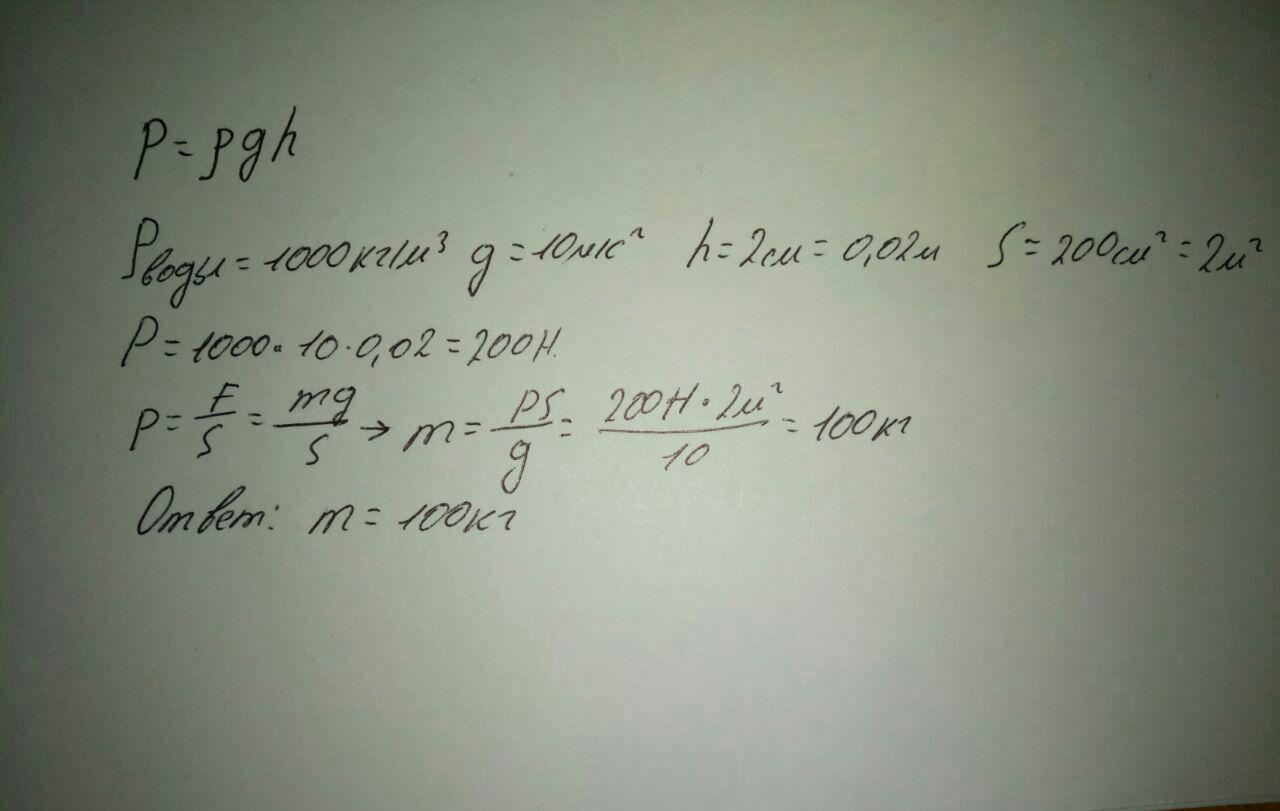 P=ρgh
ρводы=1000кг/м³ g=10м/с² h=2см=0,02м S=200см²=2м²
P=1000·10·0,02=200Н.
P=F/S=mg/S→m=PS/g=200Н·2м²/10=100кг
Ответ: m=100кг